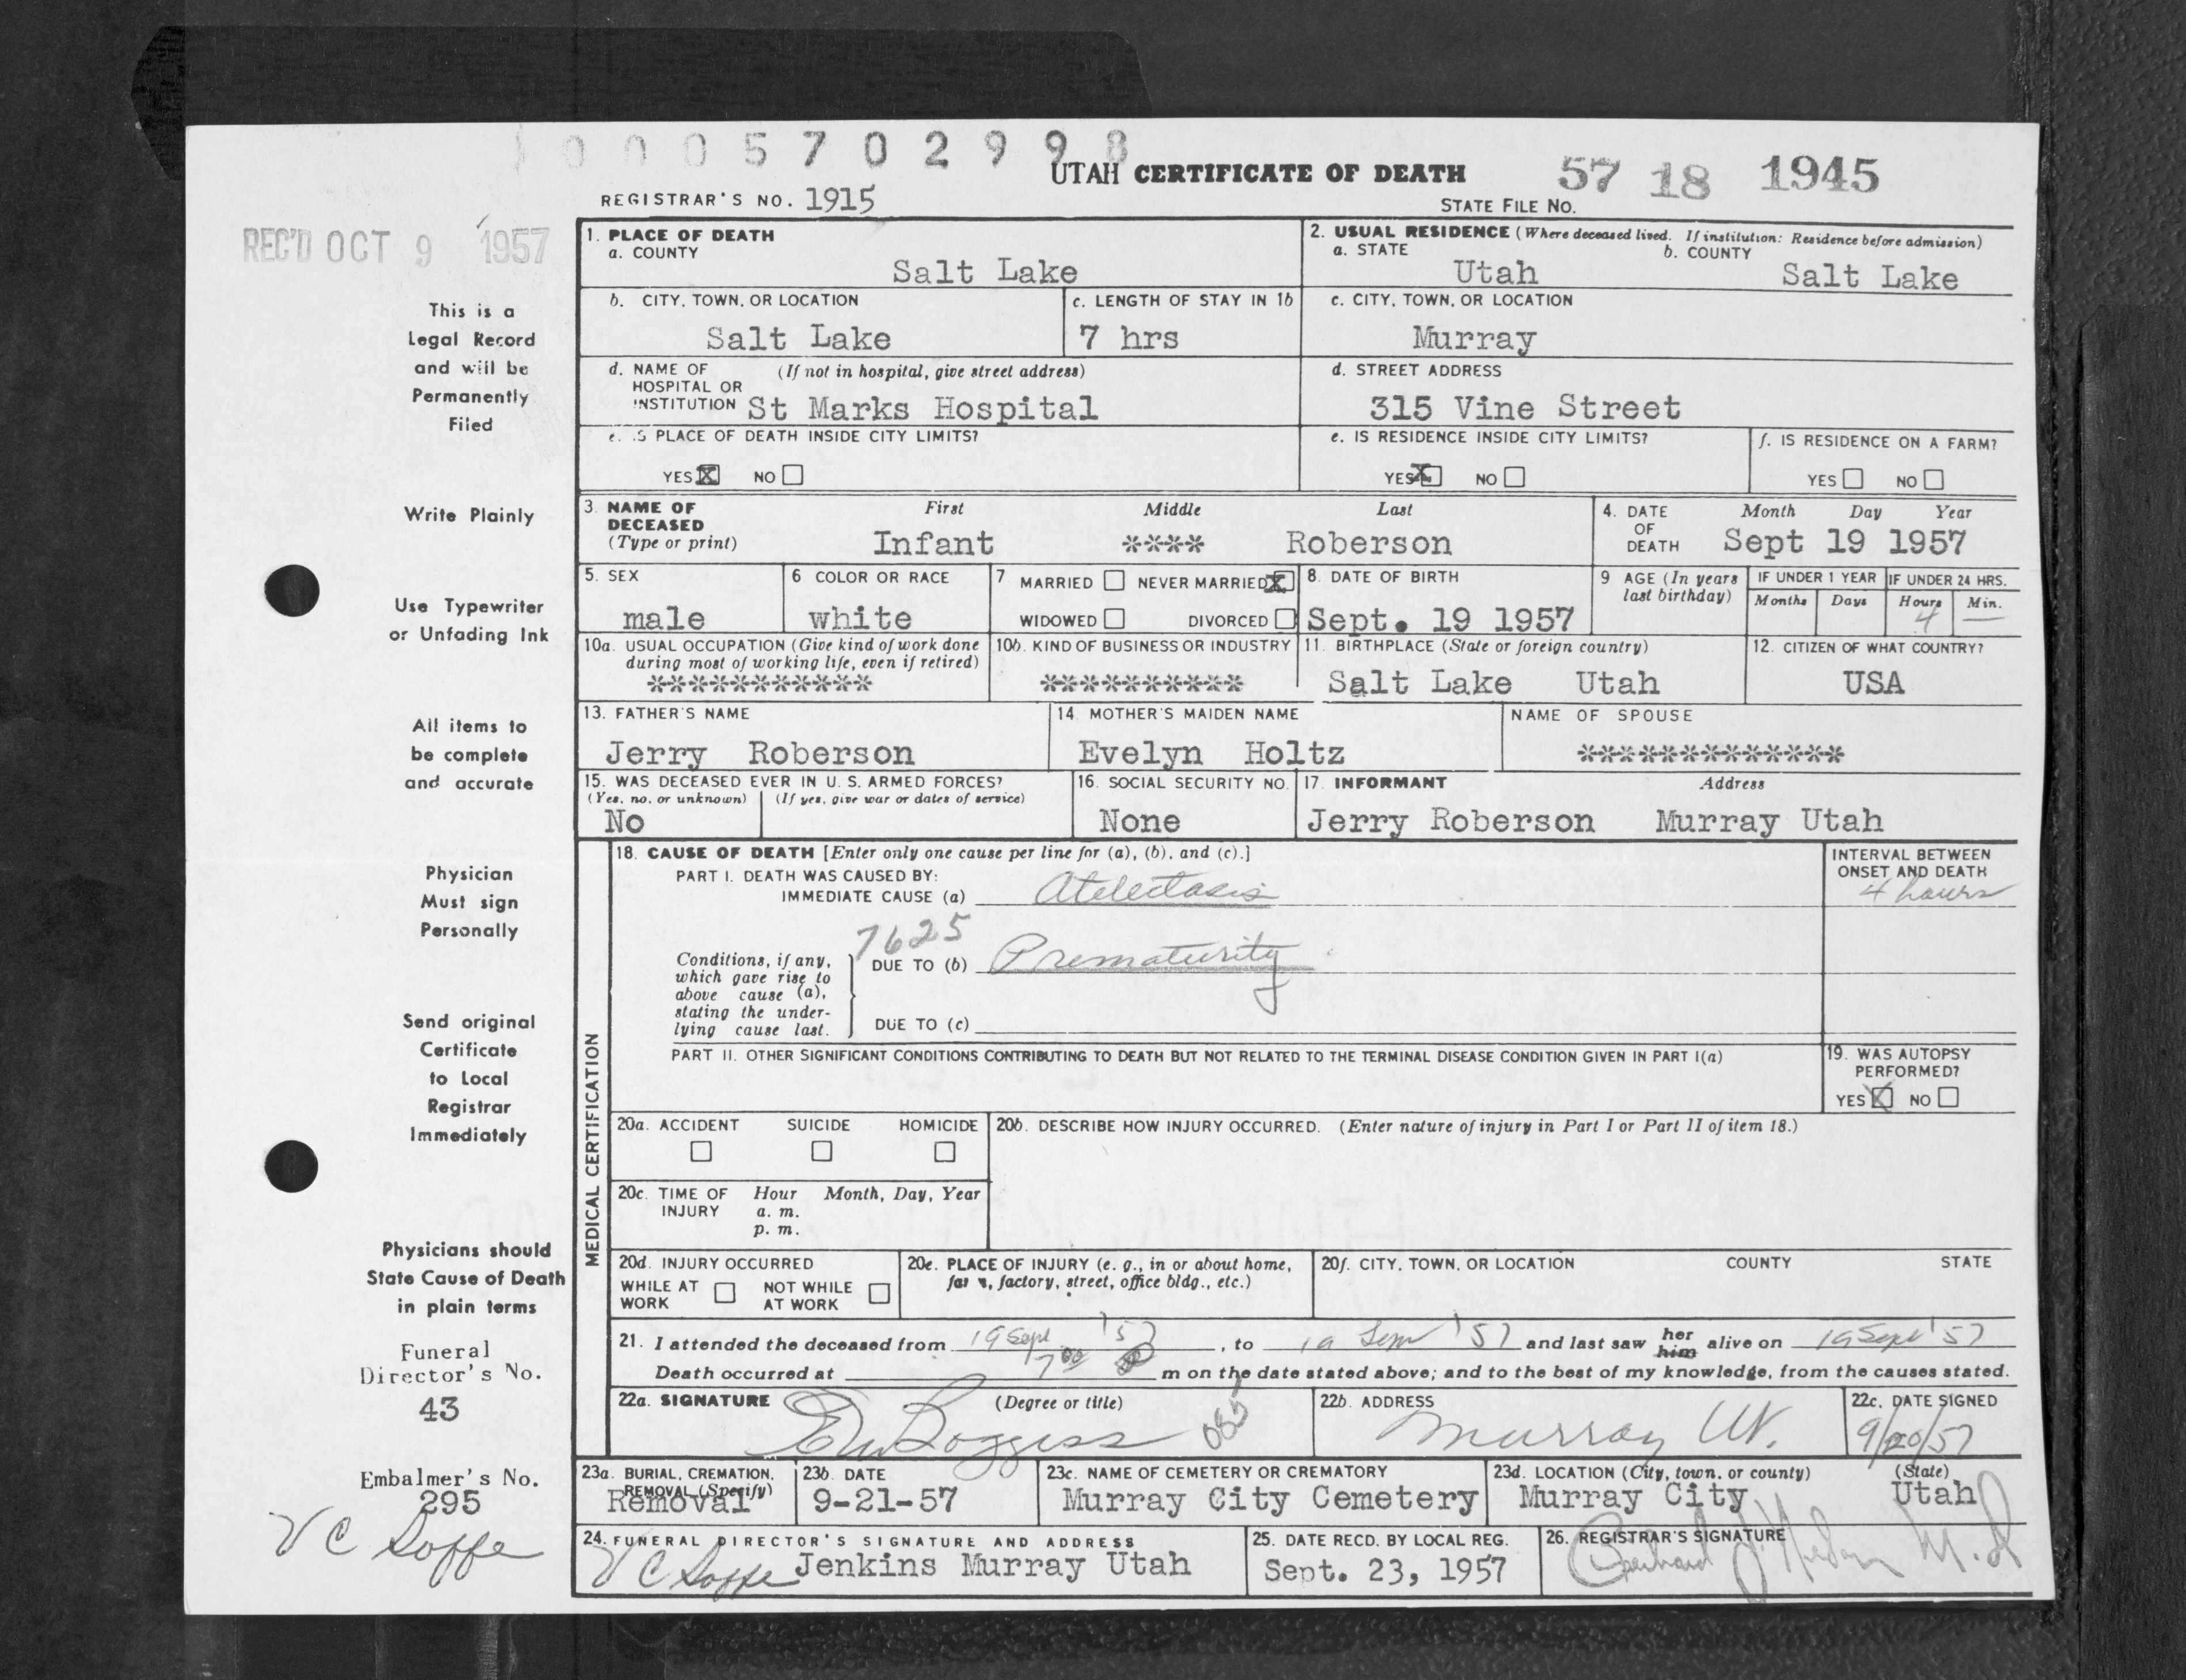 0005702998
UTAH CERTIFICATE OF DEATH 57 18 1945
REGISTRAR'S NO. 1915 STATE FILE NO.
REC'D OCT 9 1957
This is a
Legal Record
and will be
Permanently
Filed
Write Plainly
Use Typewriter
or Unfading Ink
All items to
be complete
and accurate
Physician
Must sign
Personally
Send original
Certificate
to Local
Registrar
Immediately
Physicians should
State Cause of Death
in plain terms
Funeral
Director's No.
43
Embalmer's No.
295
V C Soffe
1. PLACE OF DEATH
a. COUNTY
Salt Lake
2. USUAL RESIDENCE (Where deceased lived. If institution: Residence before admission)
a. STATE b. COUNTY
Utah Salt Lake
b. CITY, TOWN, OR LOCATION c. LENGTH OF STAY IN 1b c. CITY, TOWN, OR LOCATION
Salt Lake 7 hrs Murray
d. NAME OF (If not in hospital, give street address) d. STREET ADDRESS
HOSPITAL OR
INSTITUTION St Marks Hospital 315 Vine Street
e. IS PLACE OF DEATH INSIDE CITY LIMITS? e. IS RESIDENCE INSIDE CITY LIMITS? f. IS RESIDENCE ON A FARM?
YES X NO YES X NO YES NO
3. NAME OF First Middle Last 4. DATE Month Day Year
DECEASED OF
(Type or print) Infant **** Roberson DEATH Sept 19 1957
5. SEX 6 COLOR OR RACE 7 MARRIED NEVER MARRIED X 8. DATE OF BIRTH 9 AGE (In years last birthday) IF UNDER 1 YEAR IF UNDER 24 HRS.
Months Days Hours Min.
male white WIDOWED DIVORCED Sept. 19 1957 4 —
10a. USUAL OCCUPATION (Give kind of work done 10b. KIND OF BUSINESS OR INDUSTRY 11. BIRTHPLACE (State or foreign country) 12. CITIZEN OF WHAT COUNTRY?
during most of working life, even if retired)
*********** ********** Salt Lake Utah USA
13. FATHER'S NAME 14. MOTHER'S MAIDEN NAME NAME OF SPOUSE
Jerry Roberson Evelyn Holtz *************
15. WAS DECEASED EVER IN U. S. ARMED FORCES? 16. SOCIAL SECURITY NO. 17. INFORMANT Address
(Yes, no, or unknown) (If yes, give war or dates of service)
No None Jerry Roberson Murray Utah
MEDICAL CERTIFICATION
18. CAUSE OF DEATH [Enter only one cause per line for (a), (b), and (c).] INTERVAL BETWEEN
PART I. DEATH WAS CAUSED BY: ONSET AND DEATH
IMMEDIATE CAUSE (a) Atelectasis 4 hours
7625
Conditions, if any, which gave rise to above cause (a), stating the underlying cause last.
DUE TO (b) Prematurity
DUE TO (c)
PART II. OTHER SIGNIFICANT CONDITIONS CONTRIBUTING TO DEATH BUT NOT RELATED TO THE TERMINAL DISEASE CONDITION GIVEN IN PART I(a) 19. WAS AUTOPSY
PERFORMED?
YES X NO
20a. ACCIDENT SUICIDE HOMICIDE 20b. DESCRIBE HOW INJURY OCCURRED. (Enter nature of injury in Part I or Part II of item 18.)
20c. TIME OF Hour Month, Day, Year
INJURY a. m.
p. m.
20d. INJURY OCCURRED 20e. PLACE OF INJURY (e. g., in or about home, 20f. CITY, TOWN, OR LOCATION COUNTY STATE
WHILE AT WORK NOT WHILE AT WORK farm, factory, street, office bldg., etc.)
21. I attended the deceased from 19 Sept '57, to 19 Sept '57 and last saw her him alive on 19 Sept '57
Death occurred at 7 00 m on the date stated above; and to the best of my knowledge, from the causes stated.
22a. SIGNATURE (Degree or title) 22b. ADDRESS 22c. DATE SIGNED
Boggess 085 Murray Ut. 9/20/57
23a. BURIAL, CREMATION, 23b. DATE 23c. NAME OF CEMETERY OR CREMATORY 23d. LOCATION (City, town, or county) (State)
REMOVAL (Specify)
Removal 9-21-57 Murray City Cemetery Murray City Utah
24. FUNERAL DIRECTOR'S SIGNATURE AND ADDRESS 25. DATE RECD. BY LOCAL REG. 26. REGISTRAR'S SIGNATURE
V C Soffe Jenkins Murray Utah Sept. 23, 1957 M.D